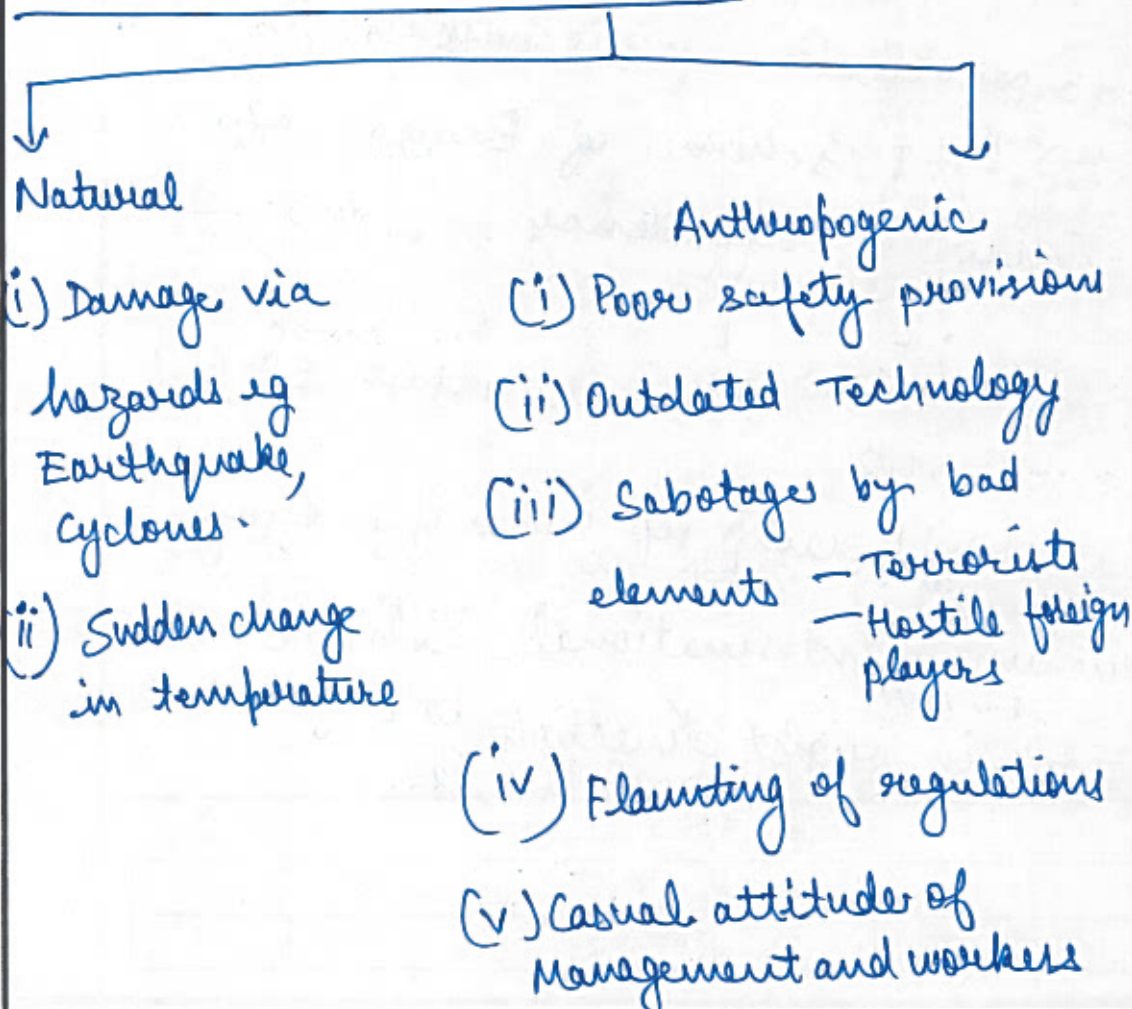 Natural
(i) Damage via
hazards eg
Earthquake,
cyclones.
(ii) Sudden change
in temperature
Anthropogenic
(i) Poor safety provisions
(ii) Outdated Technology
(iii) Sabotages by bad
elements – Terrorists
– Hostile foreign
players
(iv) Flaunting of regulations
(v) Casual attitude of
Management and workers